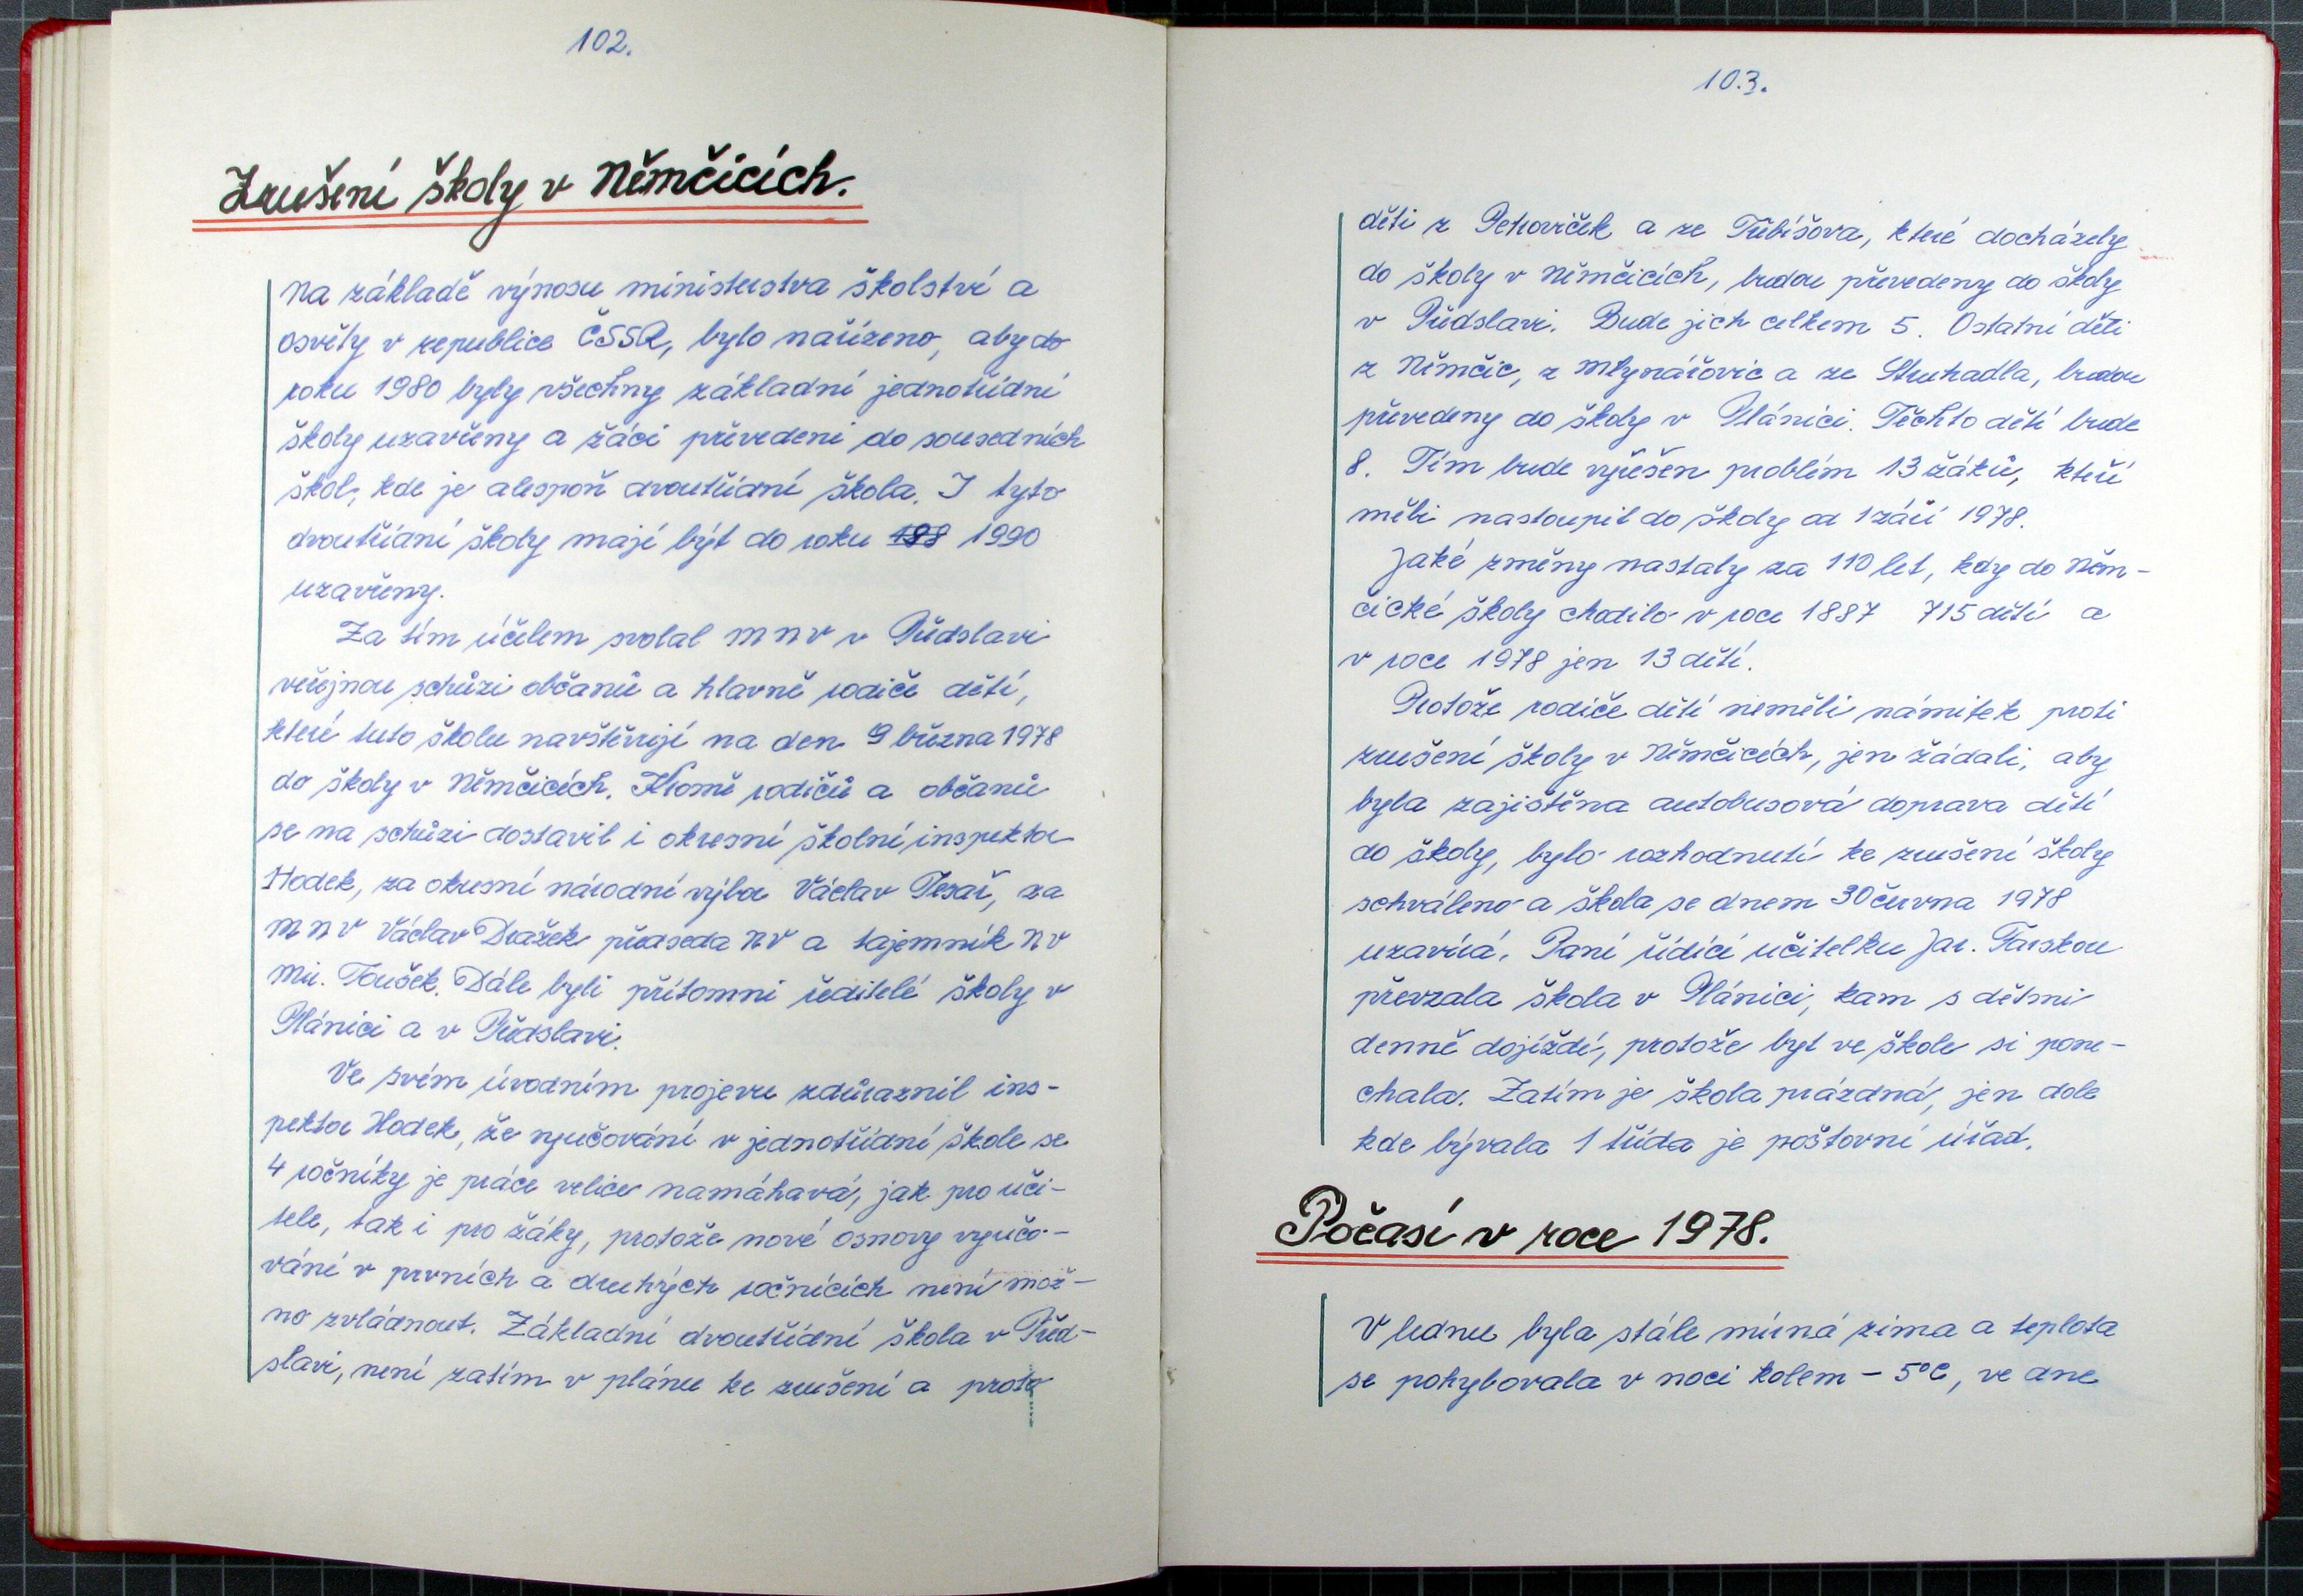 102.
Zrušení školy v Němčicích.
Na základě výnosu ministerstva školství a
osvěty v republice ČSSR, bylo nařízeno, aby do
roku 1980 byly všechny základní jednotřídní
školy uzavřeny a žáci převedeni do sousedních
škol, kde je alespoň dvoutřídní škola. I tyto
dvoutřídní školy mají být do roku 198 1990
uzavřeny.
Za tím účelem svolal MNV v Předslavi
veřejnou schůzi občanů a hlavně rodiče dětí,
které tuto školu navštěvují na den 9 března 1978
do školy v Němčicích. Kromě rodičů a občanů
se na schůzi dostavil i okresní školní inspektor
Hodek, za okresní národní výbor Václav Tesař, za
MNV Václav Dražek předseda NV a tajemník NV
Mir. Toušek. Dále byli přítomni ředitelé školy v
Plánici a v Předslavi.
Ve svém úvodním projevu zdůraznil ins-
pektor Hodek, že vyučování v jednotřídní škole se
4 ročníky je práce velice namáhavá, jak pro uči-
tele, tak i pro žáky, protože nové osnovy vyučo-
vání v prvních a druhých ročnících není mož-
no zvládnout. Základní dvoutřídní škola v Před-
slavi, není zatím v plánu ke zrušení a proto
103.
děti z Petroviček a ze Třebíšova, které docházely
do školy v Němčicích, budou převedeny do školy
v Předslavi. Bude jich celkem 5. Ostatní děti
z Němčic, z Mlynářovic a ze Struhadla, budou
převedeny do školy v Plánici. Těchto dětí bude
8. Tím bude vyřešen problém 13 žáků, kteří
měli nastoupit do školy od 1 září 1978.
Jaké změny nastaly za 110 let, kdy do Něm-
čické školy chodilo v roce 1887 715 dětí a
v roce 1978 jen 13 dětí.
Protože rodiče dětí neměli námitek proti
zrušení školy v Němčicích, jen žádali, aby
byla zajištěna autobusová doprava dětí
do školy, bylo rozhodnutí ke zrušení školy
schváleno a škola se dnem 30 června 1978
uzavírá. Paní řídící učitelku Jar. Tarskou
převzala škola v Plánici, kam s dětmi
denně dojíždí, protože byt ve škole si pone-
chala. Zatím je škola prázdná, jen dole
kde bývala 1 třída je poštovní úřad.
Počasí v roce 1978.
V lednu byla stále mírná zima a teplota
se pohybovala v noci kolem - 5°C, ve dne